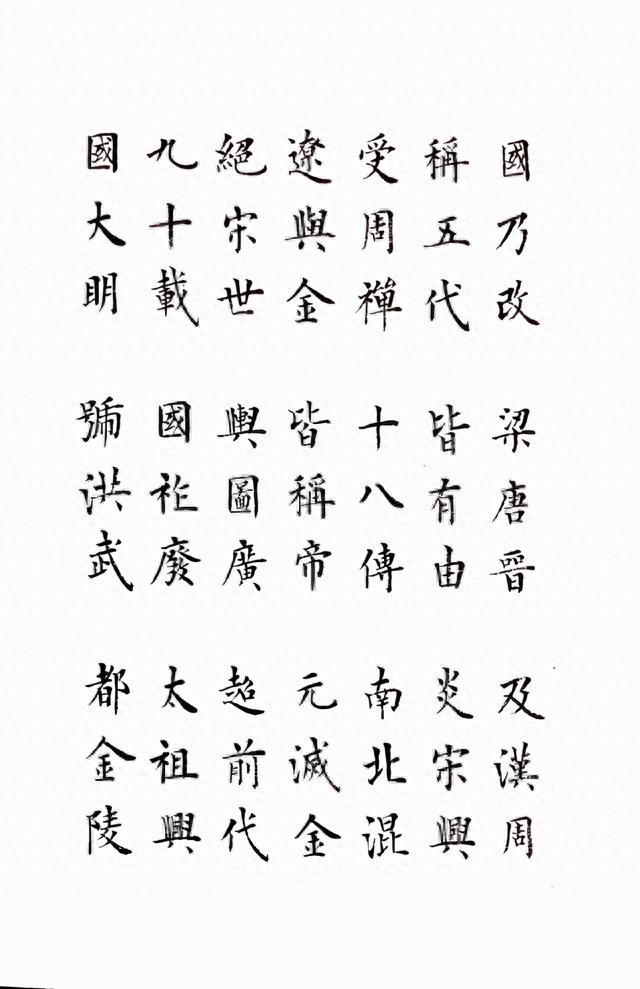 國乃改 梁唐晉 及漢周
稱五代 皆有由 炎宋興
受周禪 十八傳 南北混
遼與金 皆稱帝 元滅金
絕宋世 輿圖廣 超前代
九十載 國祚廢 太祖興
國大明 號洪武 都金陵